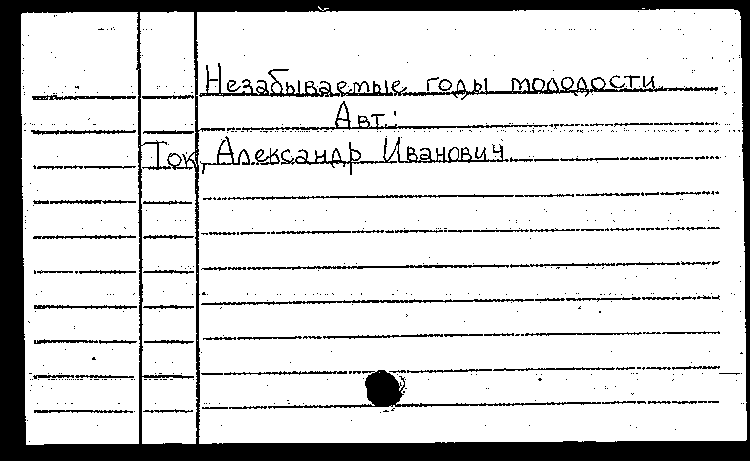 Незабываемые годы молодости
Авт.:
Ток, Александр Иванович